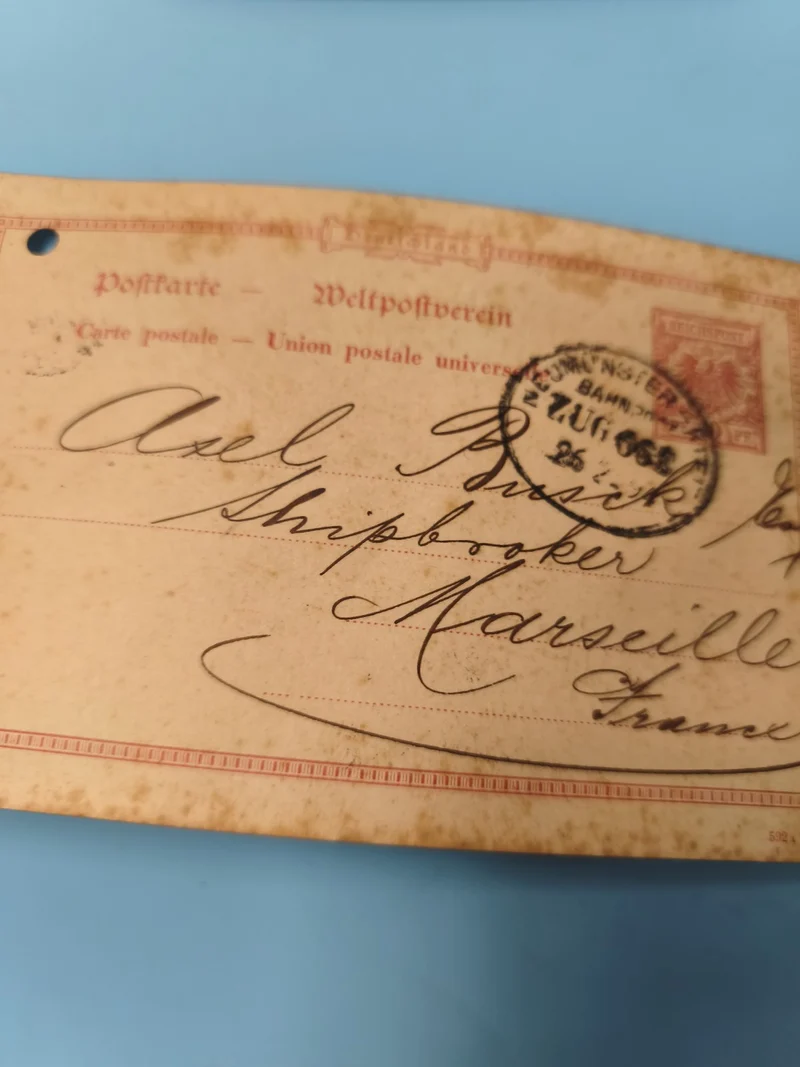 Deutschland
Postkarte — Weltpostverein
Carte postale — Union postale universelle
REICHSPOST
NEUMÜNSTER
BAHNPOST
ZUG 66
26
Axel Busck
Shipbroker
Marseille
France
592